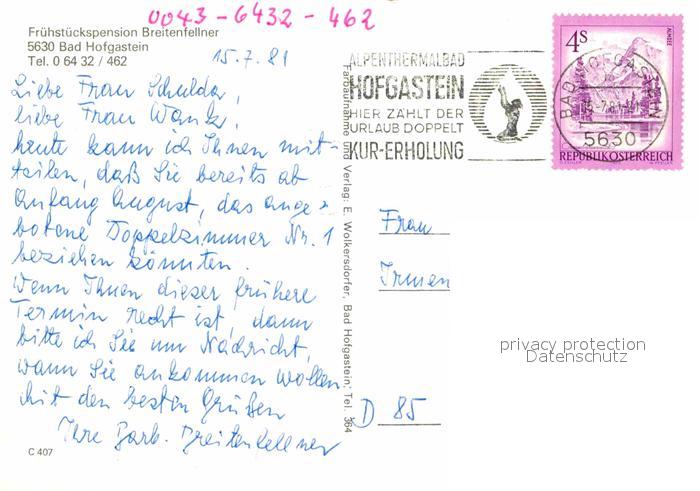 0043-6432-462
Frühstückspension Breitenfellner
5630 Bad Hofgastein
Tel. 0 64 32 / 462
15.7.81
Liebe Frau Schulda,
liebe Frau Wank,
heute kann ich Ihnen mit-
teilen, daß Sie bereits ab
Anfang August, das ange-
botene Doppelzimmer Nr. 1
beziehen könnten.
Wenn Ihnen dieser frühere
Termin recht ist, dann
bitte ich Sie um Nachricht,
wann Sie ankommen wollen
Mit den besten Grüßen
Ihre Barb. Breitenfellner
C 407
Farbaufnahme und Verlag: E. Wolkersdorfer, Bad Hofgastein; Tel. 364
ALPENTHERMALBAD
HOFGASTEIN
HIER ZÄHLT DER
URLAUB DOPPELT
KUR-ERHOLUNG
4S
ALMSEE
BAD HOFGASTEIN
5630
REPUBLIK ÖSTERREICH
Frau
Irmen
privacy protection
Datenschutz
D 85